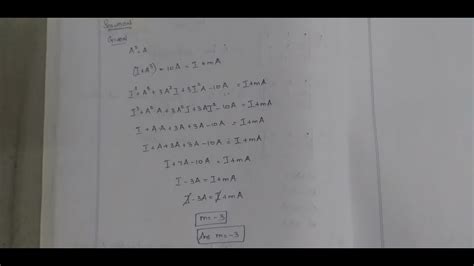 Given
A² = A
(I+A³) - 10A = I+mA
I³+A³+3A²I+3I²A-10A = I+mA
I³+A².A+3A²I+3AI²-10A = I+mA
I+A.A+3A+3A-10A = I+mA
I+A+3A+3A-10A = I+mA
I+7A-10A = I+mA
I-3A = I+mA
I-3A = I+mA
m=-3
Ans m=-3